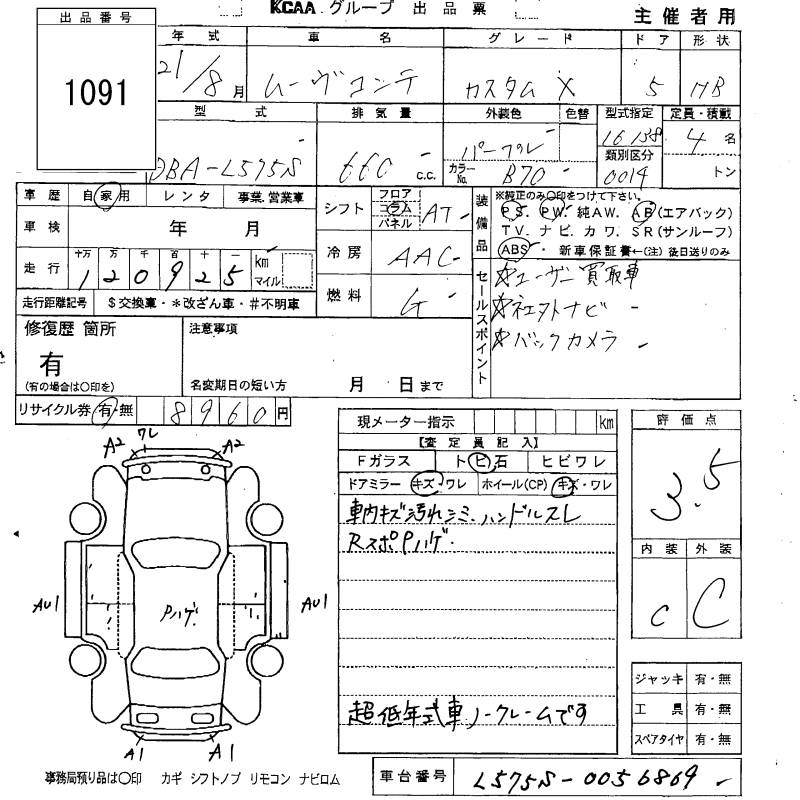 KCAA グループ 出品票
主催者用
出品番号
1091
年式 車名 グレード ドア 形状
21/8月 ムーヴコンテ カスタム X 5 HB
型式 排気量 外装色 色替 型式指定 定員・積載
DBA-L575S 660 c.c. パープル カラーNo. B70 16158 類別区分 0014 4名 トン
車歴 自家用 レンタ 事業.営業車
車検 年 月
走行 十万 万 千 百 十 一 km マイル
120925
走行距離記号 $交換車・*改ざん車・#不明車
シフト フロア コラム パネル AT
冷房 AAC
燃料 G
装備品
※純正のみ○印をつけて下さい。
PS. PW. 純AW. AB(エアバック)
TV. ナビ. カワ. SR(サンルーフ)
ABS・新車保証書←(注)後日送りのみ
セールスポイント
☆ユーザー買取車
☆社外ナビ
☆バックカメラ
修復歴 箇所
有
(有の場合は○印を)
注意事項
名変期日の短い方 月 日まで
リサイクル券 有・無 8960円
現メーター指示 km
【査定員記入】
Fガラス トビ石 ヒビワレ
ドアミラー キズ・ワレ ホイール(CP) キズ・ワレ
車内キズ汚れシミ.ハンドルスレ
RスポPハゲ.
超低年式車ノークレームです
評価点
3.5
内装 外装
C C
ジャッキ 有・無
工具 有・無
スペアタイヤ 有・無
A2 ワレ A2
AU1 Pハゲ. AU1
A1 A1
事務局預り品は○印 カギ シフトノブ リモコン ナビロム
車台番号 L575S-0056869